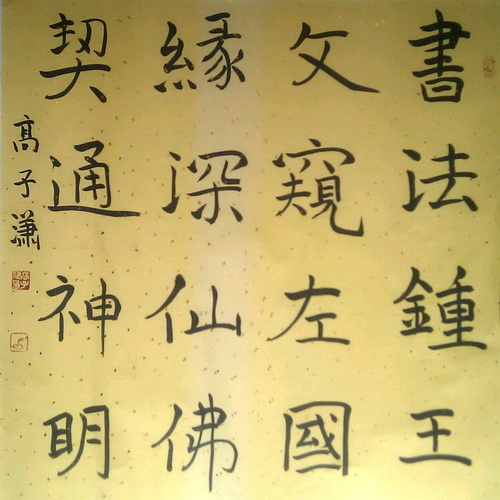 書法鍾王
文窺左國
緣深仙佛
契通神明
高子谦